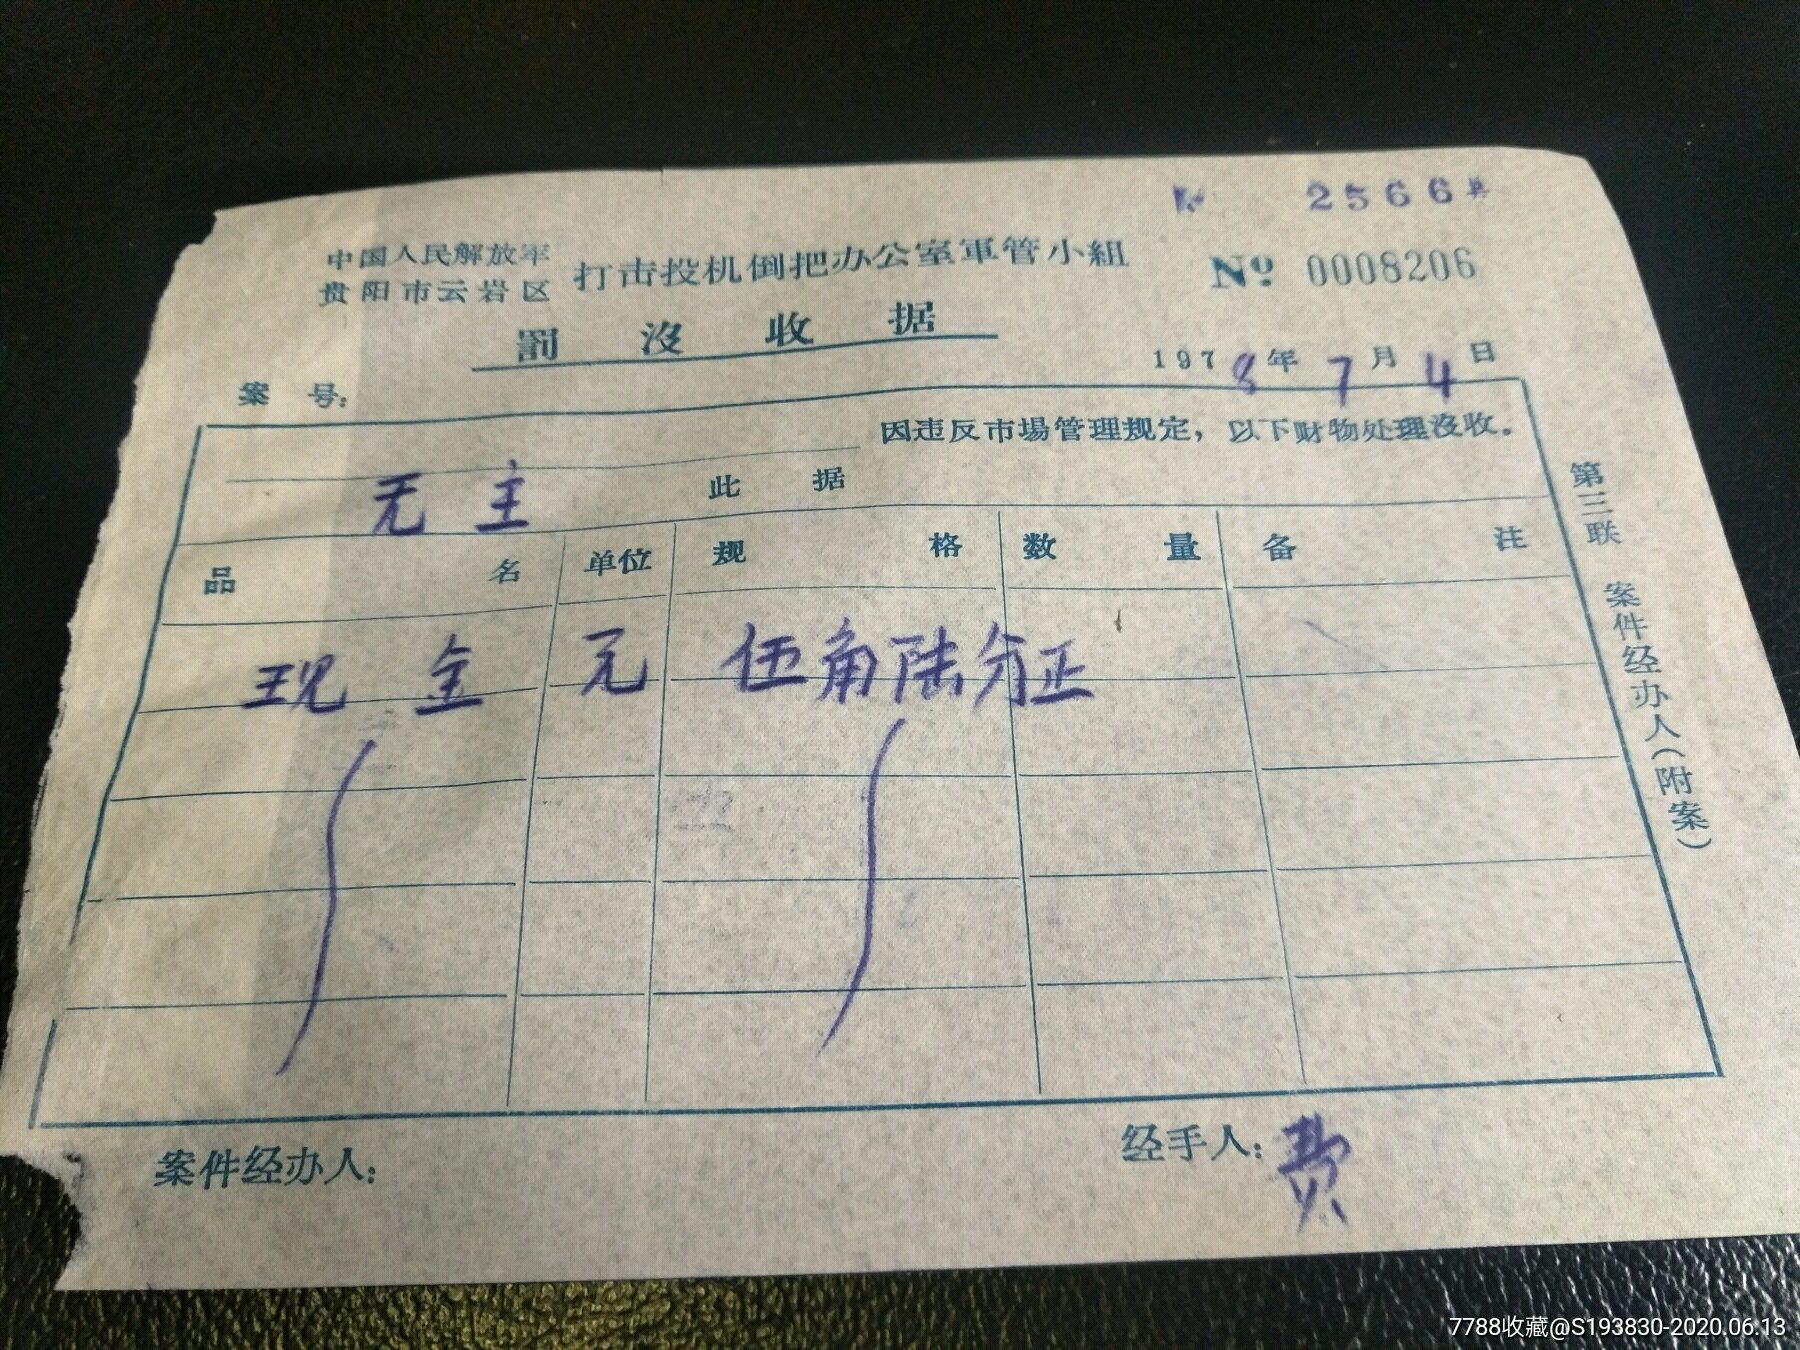 2566
中国人民解放军
贵阳市云岩区
打击投机倒把办公室軍管小組
№ 0008206
罰没收据
1978年7月4日
案号:
因违反市場管理规定，以下财物处理没收。
无主
此据
品名 单位 规格 数量 备注
现金 元 伍角陆分正
第三联 案件经办人(附案)
案件经办人:
经手人: 费
7788收藏@S193830-2020.06.13